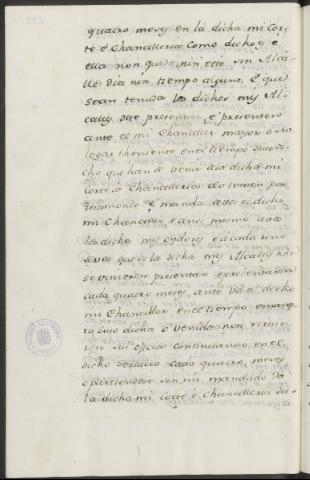 quatro meses en la dicha mi Cor-
te é Chancilleria como dicho es é
ella non quede nin esté sin Alcal-
lle dia nin tiempo alguno, é que
sean tenudos los dichos mis Al-
calles de se presentar, é presenten
ante el mi Chanciller mayor ó su
logar theniente en el tiempo suso di-
cho que han de venir á la dicha mi
Corte é Chancilleria é lo tomen por
testimonio é mando a vos el dicho
mi Chanciller é ansi mesmo a vos
los dichos mis oydores é á cada uno
de vos que si los dichos mis Alcalles non
se vinieren presentar é presentaren
cada quatro meses, ante vos el dicho
mi Chanciller en el tiempo
suso dicho é venidos non sirvie-
ren su oficio continuando en el
dicho servicio cada quatro meses
ó partieredes sin mi mandado de
la dicha mi Corte é Chancilleria du-